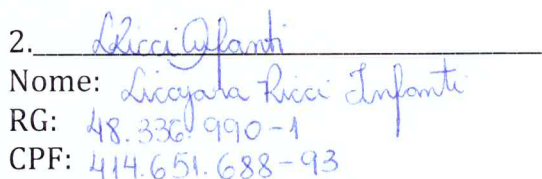 2. LRicci Infanti
Nome: Liccyara Ricci Infanti
RG: 48.336.990-1
CPF: 414.651.688-93